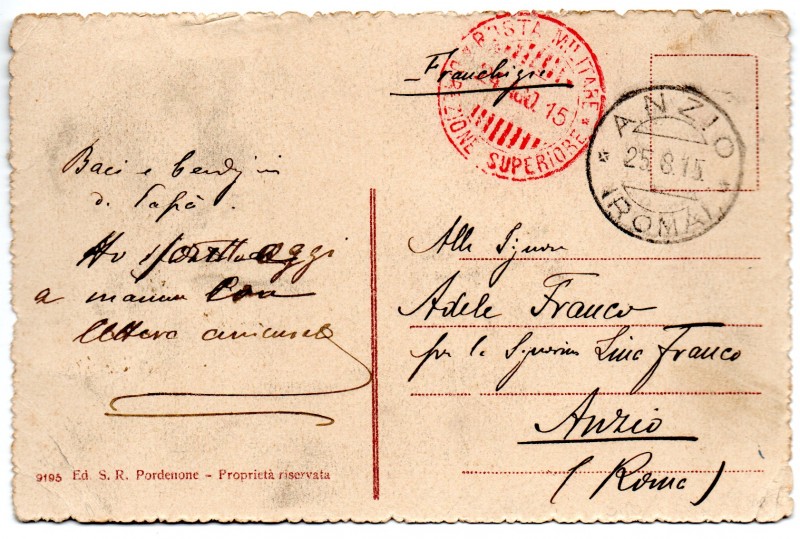 Franchigia
POSTA MILITARE
24 AGO. 15
DIREZIONE SUPERIORE
ANZIO
25.8.15
(ROMA)
Baci e
di Papà.
Ho oggi
a mamma
lettera
Alla Signora
Adele Franco
per la Signorina Lina Franco
Anzio
(Roma)
9195 Ed. S. R. Pordenone - Proprietà riservata